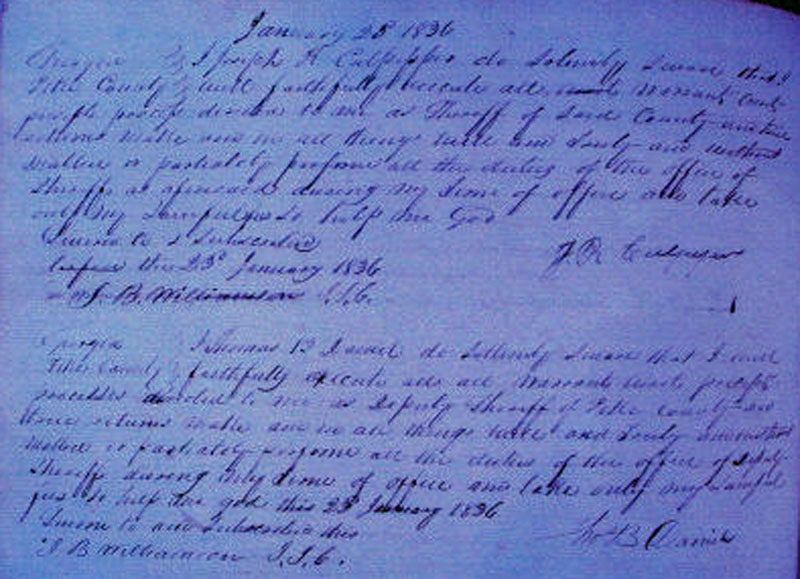 January 25th 1836
Georgia } I Joseph R Culpepper do Solemnly Swear that I
Pike County } will faithfully execute all warrants writs
precepts process directed to me as Sheriff of Said County and true
returns make and in all things well and truly and without
mallice or partiality perform all the duties of the office of
Sheriff as aforesaid during my time of office and take
only my lawful fees So help me God
Sworn to & Subscribed
before this 25th January 1836
J R Culpepper
J. B. Williamson J.I.C.
Georgia } I Thomas B Daniel do Sollemly Swear that I will
Pike County } faithfully execute all all warrants writs precepts
processes directed to me as Deputy Sheriff of Pike County and
true returns make and in all things well and truly and without
mallice or partiality perform all the duties of the office of Deputy
Sheriff during my time of office and take only my lawful
fees So help me god this 25th January 1836
Sworn to and Subscribed this
Tho B Daniel
J B Williamson J.I.C.